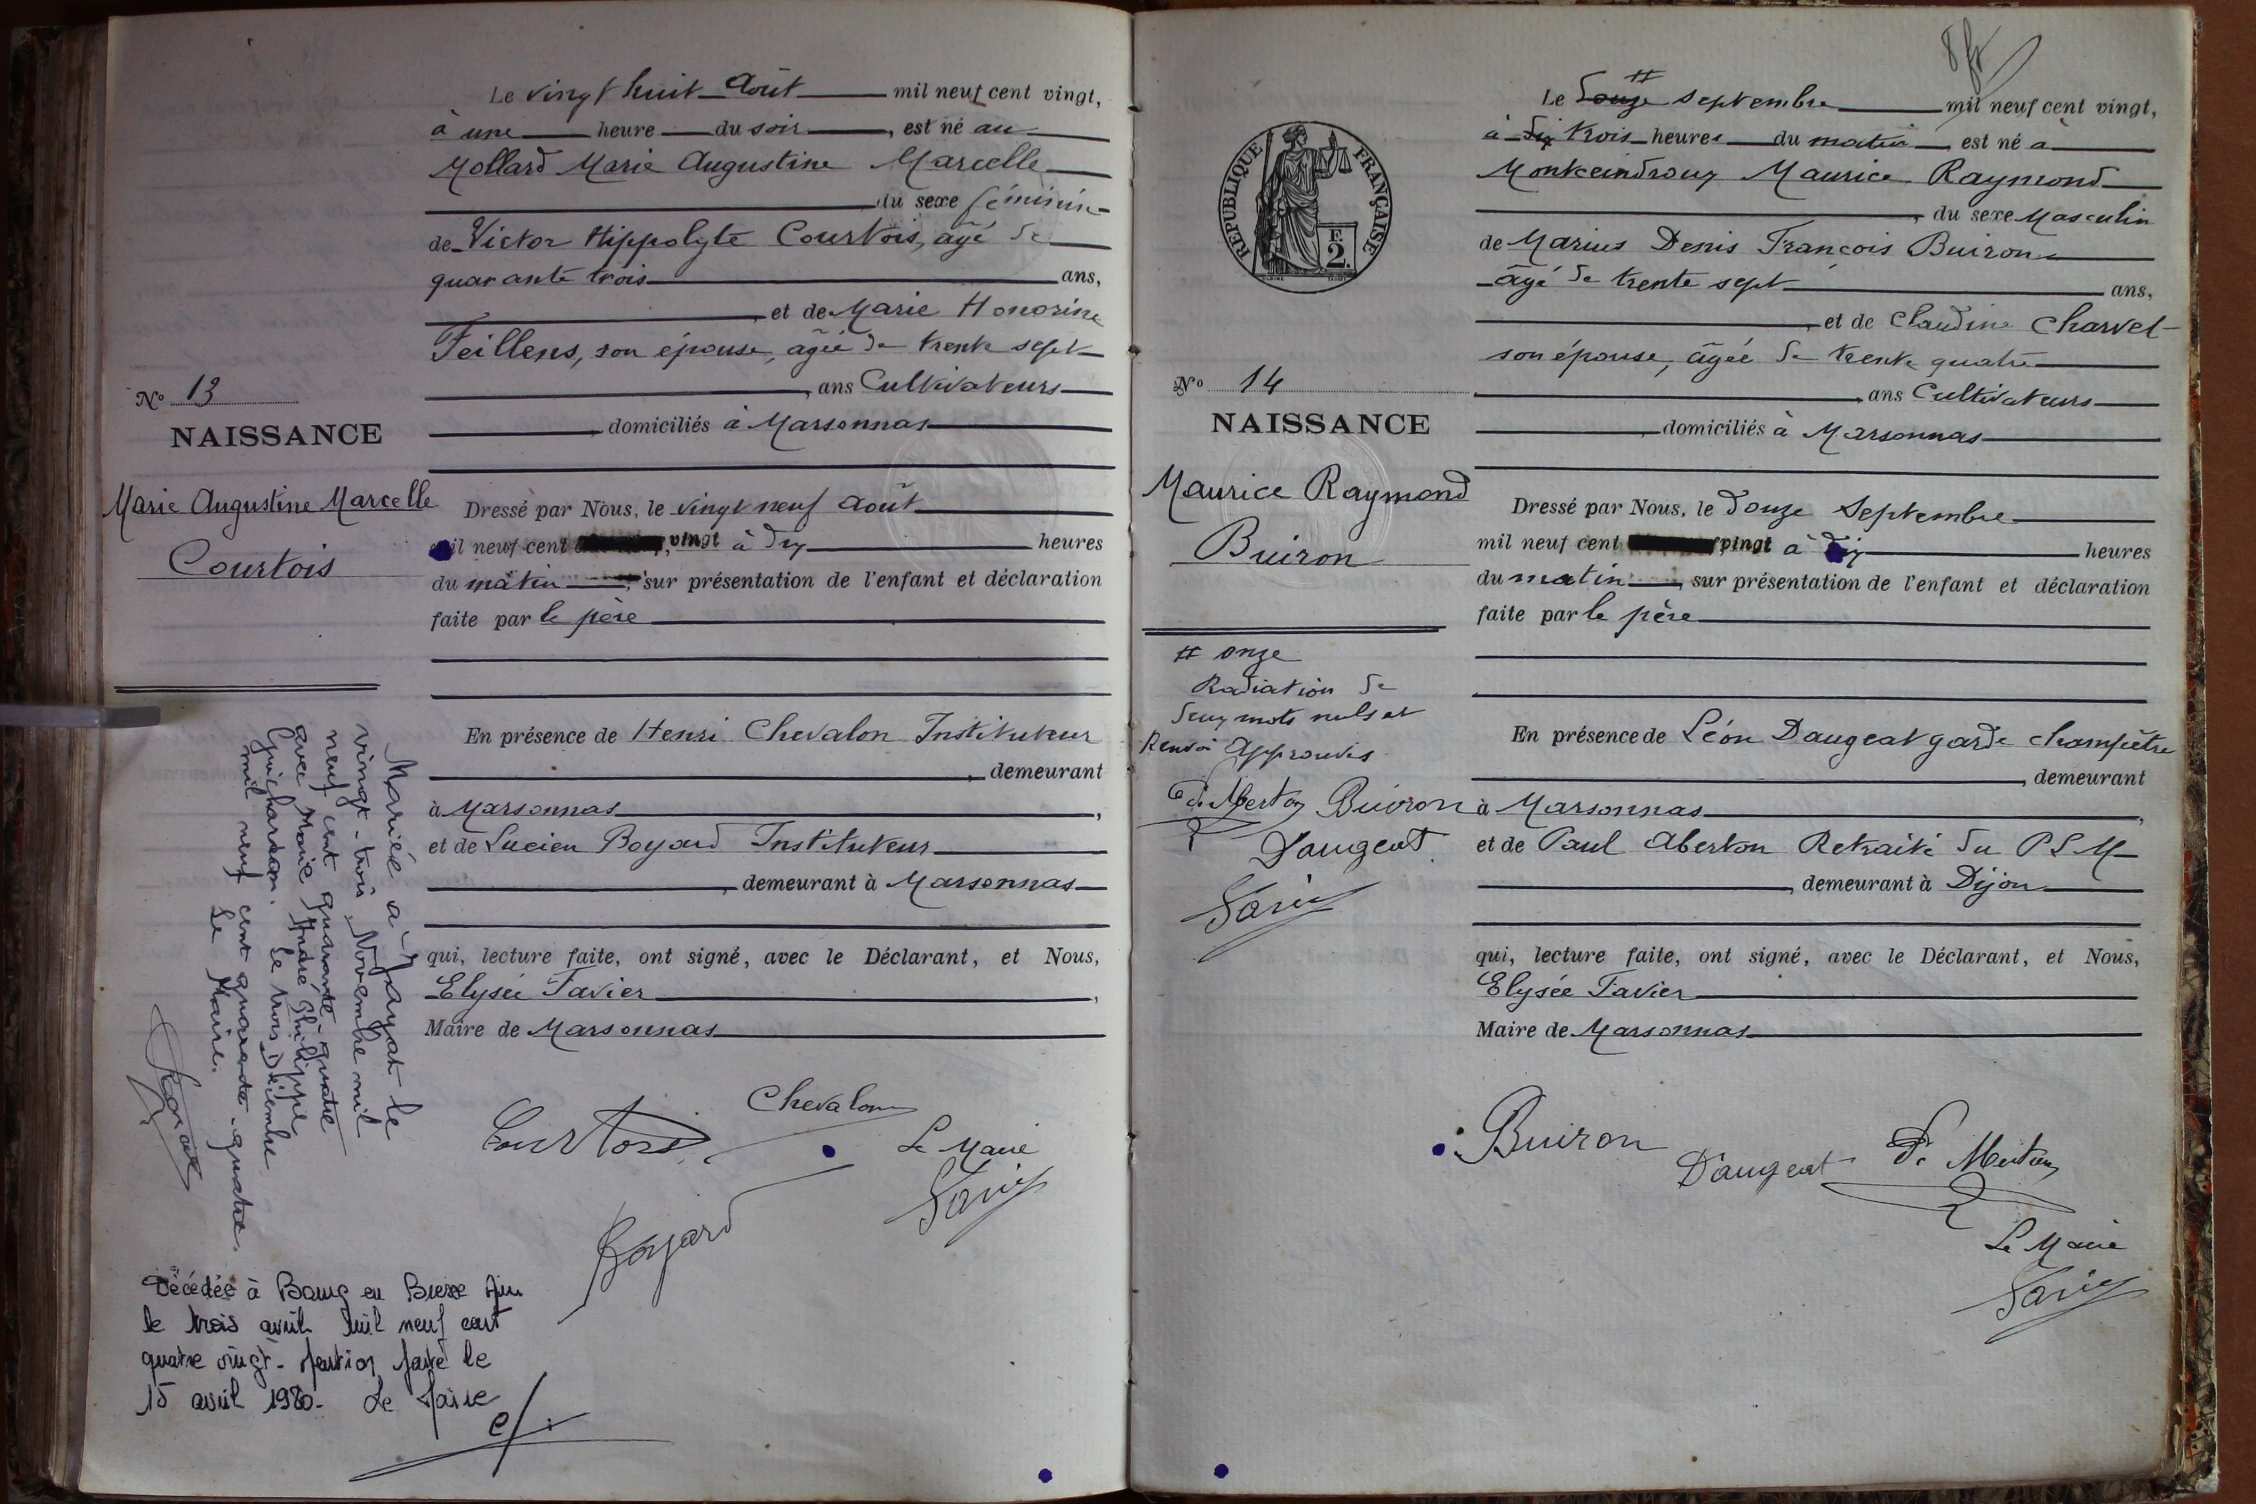 Le vingt huit Août mil neuf cent vingt,
à une heure du soir, est né au
Mollard Marie Augustine Marcelle
du sexe féminin
de Victor Hippolyte Courtois, âgé de
quarante trois ans,
et de Marie Honorine
Feillens, son épouse, âgée de trente sept
ans Cultivateurs
domiciliés à Marsonnas
No 13
NAISSANCE
Marie Augustine Marcelle
Courtois
Dressé par Nous, le vingt neuf août
mil neuf cent vingt à dix heures
du matin, sur présentation de l'enfant et déclaration
faite par le père
En présence de Henri Chevalon Instituteur
demeurant
à Marsonnas,
et de Lucien Boyard Instituteur
demeurant à Marsonnas
qui, lecture faite, ont signé, avec le Déclarant, et Nous,
Elysée Favier,
Maire de Marsonnas
Mariée à Jayat le
vingt-trois Novembre mil
neuf cent quarante-quatre
avec Marie André Philippe
Guichardan. Le trois Décembre
mil neuf cent quarante-quatre.
Le Maire.
Courtois
Chevalon
Boyard
Le Maire
Favier
Décédée à Bourg en Bresse Ain
le trois avril mil neuf cent
quatre vingt- Mention faite le
15 avril 1980- Le Maire
8 fr
Le douze # septembre mil neuf cent vingt,
à dix trois heures du matin est né à
Montceindroux Maurice Raymond
du sexe Masculin
de Marius Denis François Buiron
âgé de trente sept ans,
et de Claudine Charvet
son épouse, âgée de trente quatre
ans Cultivateurs
domiciliés à Marsonnas
REPUBLIQUE FRANÇAISE
F.
2.
No 14
NAISSANCE
Maurice Raymond
Buiron
Dressé par Nous, le douze Septembre
mil neuf cent vingt à dix heures
du matin, sur présentation de l'enfant et déclaration
faite par le père
# onze
Radiation de
deux mots nuls et
Renvoi Approuvés
Buiron
Daugeat
Favier
En présence de Léon Daugeat garde champêtre
demeurant
à Marsonnas,
et de Paul Aberton Retraité du PLM
demeurant à Dijon
qui, lecture faite, ont signé, avec le Déclarant, et Nous,
Elysée Favier
Maire de Marsonnas
Buiron
Daugeat
Le Maire
Favier